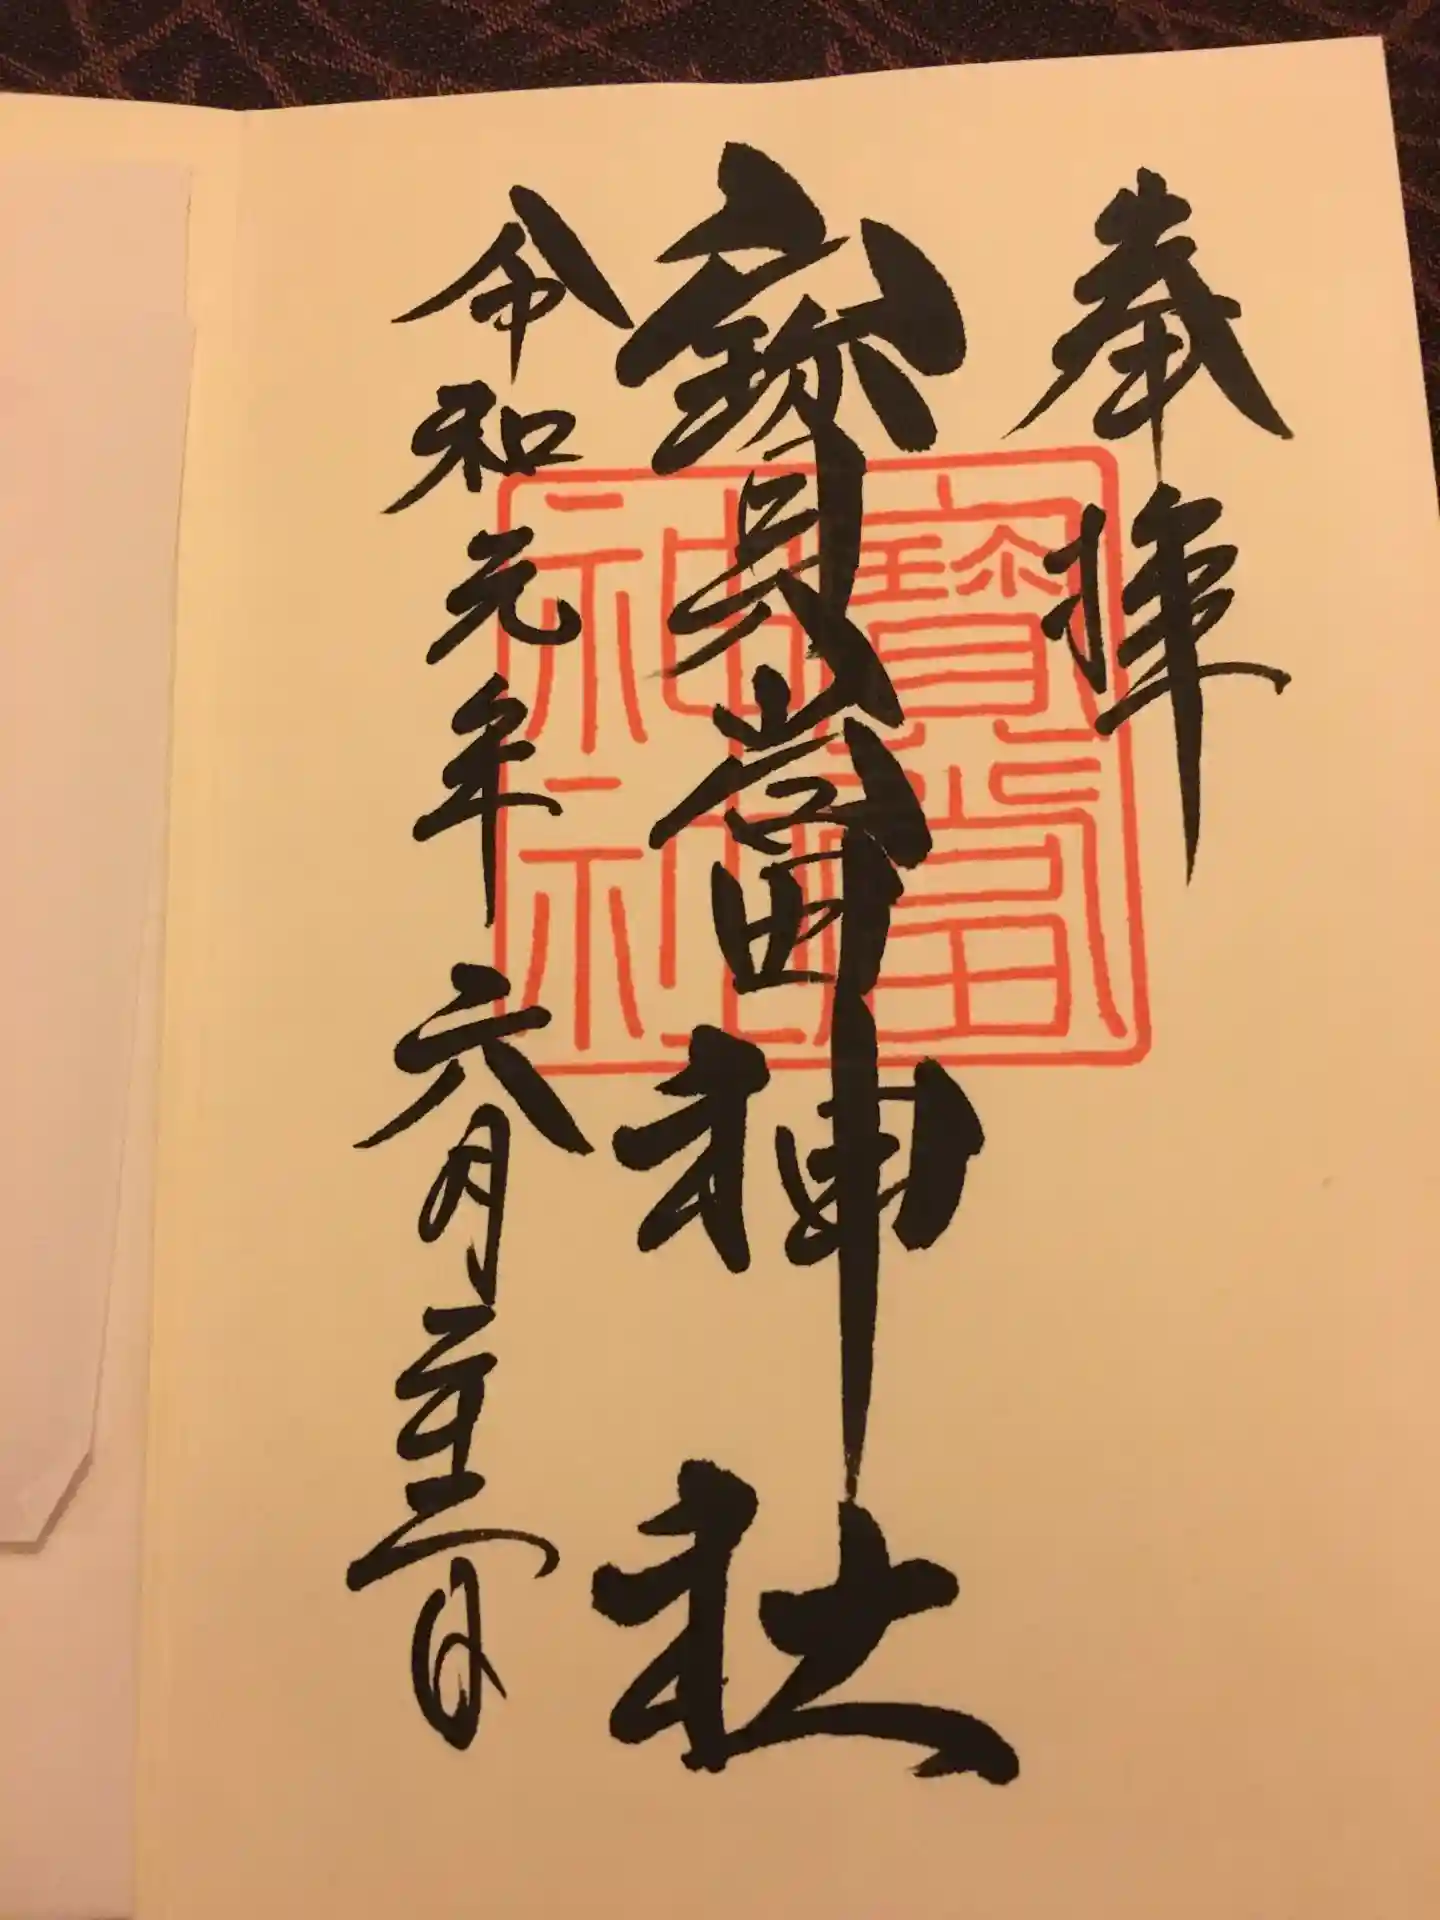 奉拝
寳當神社
令和元年六月二十三日
寳當
神社